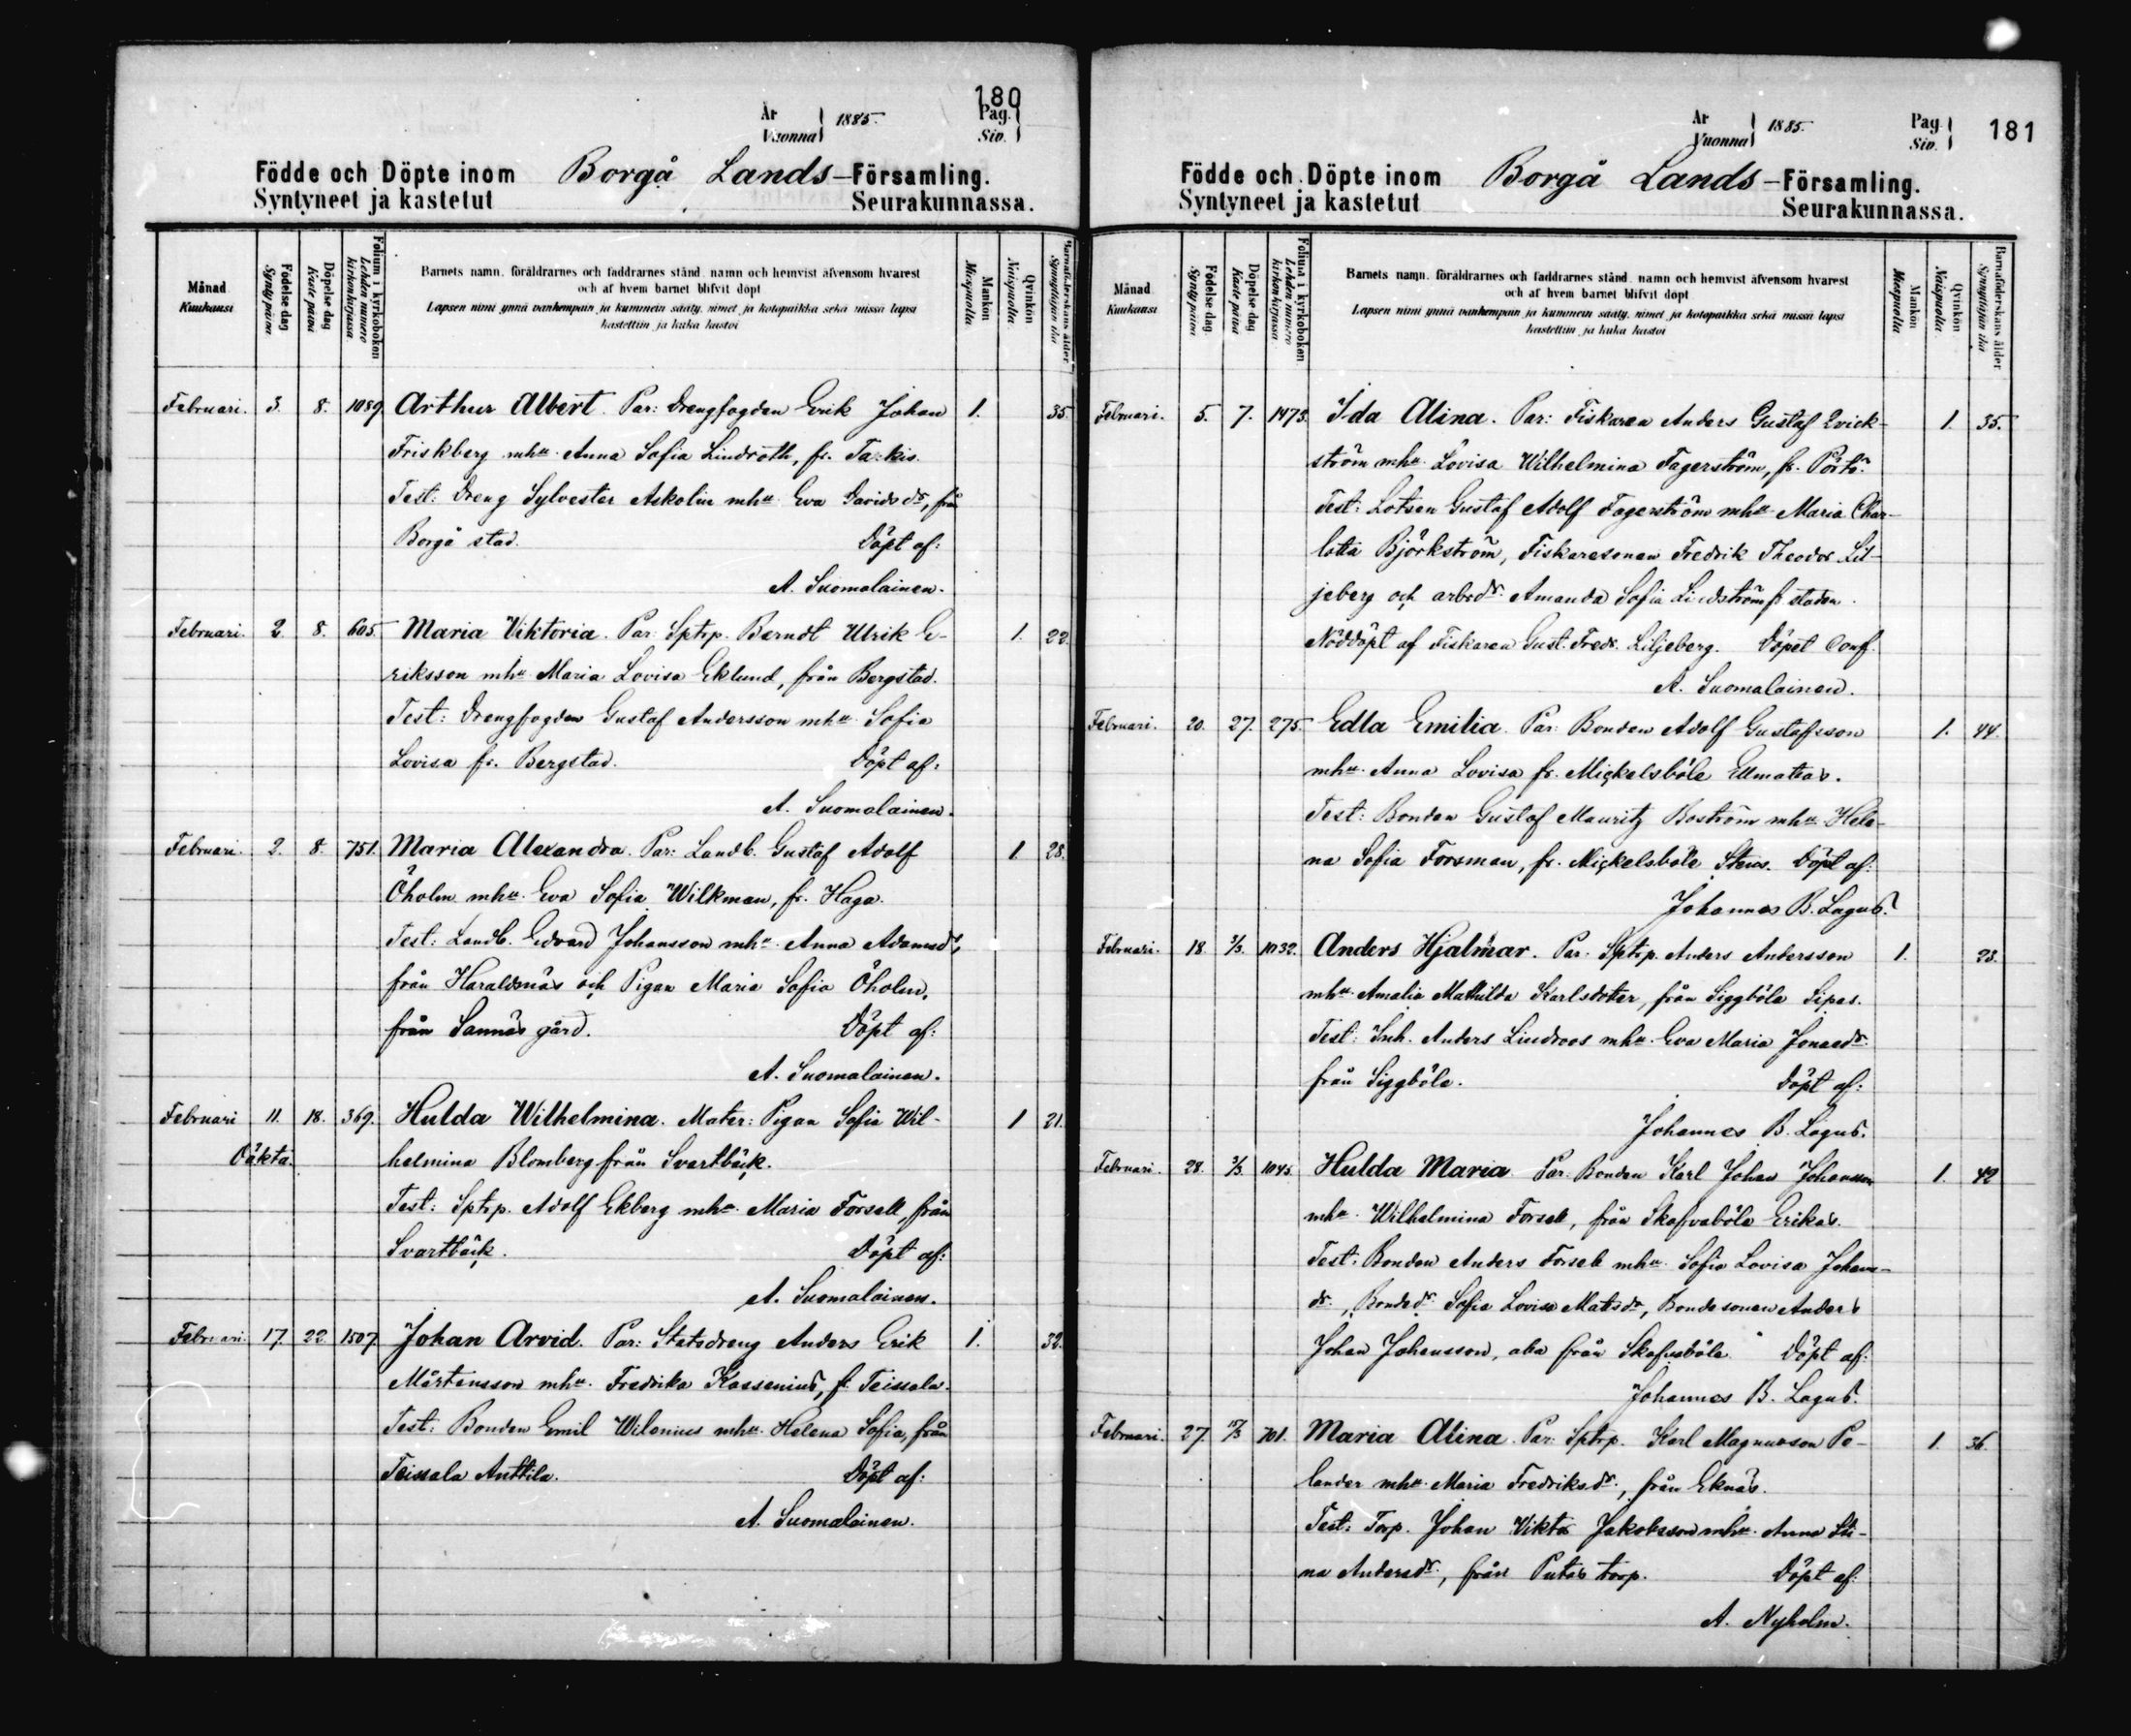 180
År
Vuonna 1885.
Pag.
Siv.
Födde och Döpte inom Borgå Lands-Församling.
Syntyneet ja kastetut Seurakunnassa.
Månad
Kuukausi
Födelse dag
Synty päivä
Döpelse dag
Kaste päivä
Folium i kyrkoboken
Lehden numero kirkonkirjassa
Barnets namn, föräldrarnes och faddrarnes stånd, namn och hemvist äfvensom hvarest
och af hvem barnet blifvit döpt
Lapsen nimi ynnä vanhempain ja kummein sääty, nimet ja kotopaikka sekä missä lapsi
kastettiin ja kuka kastoi
Mankön
Miespuolta
Qvinkön
Naispuolta
Barnaföderskans ålder
Synnyttäjän ikä
Februari. 3. 8. 1089 Arthur Albert. Par: Drengfogden Erik Johan 1. 35.
Friskberg mhu. Anna Sofia Lindroth, fr. Tarkis.
Test: Dreng Sylvester Askolin mhu. Eva Davidsdr, från
Borgå stad. Döpt af:
A. Suomalainen.
Februari. 2. 8. 605. Maria Viktoria. Par: Sptrp. Berndt Ulrik E- 1. 22.
riksson mhu. Maria Lovisa Eklund, från Bergstad.
Test: Drengfogden Gustaf Andersson mhu. Sofia
Lovisa fr. Bergstad. Döpt af:
A. Suomalainen.
Februari. 2. 8. 751. Maria Alexandra. Par: Landb. Gustaf Adolf 1. 28.
Öholm mhu. Eva Sofia Wilkman, fr. Haga.
Test: Landb. Edvard Johansson mhu. Anna Adamsdr,
från Haraldsnäs och Pigan Maria Sofia Öholm,
från Sannäs gård. Döpt af:
A. Suomalainen.
Februari 11. 18. 369. Hulda Wilhelmina. Mater: Pigan Sofia Wil- 1 21.
Oäkta. helmina Blomberg från Svartbäck.
Test: Sptrp. Adolf Ekberg mhu. Maria Forsell, från
Svartbäck. Döpt af:
A. Suomalainen.
Februari. 17. 22 1507. Johan Arvid. Par: Statsdreng Anders Erik 1. 32.
Mårtensson mhu. Fredrika Kassenius, fr. Teissala.
Test: Bonden Emil Wilenius mhu. Helena Sofia, från
Teissala Anttila. Döpt af:
A. Suomalainen.
År
Vuonna 1885.
Pag.
Siv.
181
Födde och Döpte inom Borgå Lands-Församling.
Syntyneet ja kastetut Seurakunnassa.
Månad
Kuukausi
Födelse dag
Synty päivä
Döpelse dag
Kaste päivä
Folium i kyrkoboken.
Lehden numero kirkonkirjassa
Barnets namn, föräldrarnes och faddrarnes stånd, namn och hemvist äfvensom hvarest
och af hvem barnet blifvit döpt
Lapsen nimi ynnä vanhempain ja kummein sääty, nimet ja kotopaikka sekä missä lapsi
kastettiin ja kuka kastoi
Mankön
Miespuolta
Qvinkön
Naispuolta
Barnaföderskans ålder
Synnyttäjän ikä
Februari. 5. 7. 1473. Ida Alina. Par: Fiskaren Anders Gustaf Qvick- 1. 35.
ström mhu. Lovisa Wilhelmina Fagerström, fr. Pörtö.
Test: Lotsen Gustaf Adolf Fagerström mhu. Maria Char-
lotta Björkström, Fiskaresonen Fredrik Theodor Lil-
jeberg och arbdr. Amanda Sofia Lindström fr staden.
Nöddöpt af Fiskaren Gust. Fredr. Liljeberg. Döpet Conf.
A. Suomalainen.
Februari. 20. 27. 275. Edla Emilia. Par: Bonden Adolf Gustafsson 1. 44.
mhu. Anna Lovisa fr. Mickelsböle
Test: Bonden Gustaf Mauritz Boström mhu. Hele-
na Sofia Forsman, fr. Mickelsböle Stens. Döpt af:
Johannes B. Lagus.
Februari. 18. 1/3. 1032. Anders Hjalmar. Par: Sptrp. Anders Andersson 1. 23.
mhu. Amalia Mathilda Karlsdoter, från Siggböle Sipas.
Test: Inh. Anders Lindroos mhu. Eva Maria Jonasdr.
från Siggböle. Döpt af:
Johannes B. Lagus.
Februari. 28. 3/3. 1045. Hulda Maria Par: Bonden Karl Johan Johansson 1. 42
mhu. Wilhelmina Forsell, från Skafvaböle Erikas.
Test: Bonden Anders Forsell mhu. Sofia Lovisa Johans-
dr., Bondedr. Sofia Lovisa Matsdr, Bondesonen Anders
Johan Johansson, alla från Skafvaböle. Döpt af:
Johannes B. Lagus.
Februari. 27. 701. Maria Alina. Par: Sptrp. Karl Magnusson Pe- 1. 36.
lander mhu. Maria Fredriksdr., från Eknäs.
Test: Torp. Johan Viktor Jakobsson mhu. Anna Sti-
na Andersdr., från Putäs torp. Döpt af:
A. Nyholm.